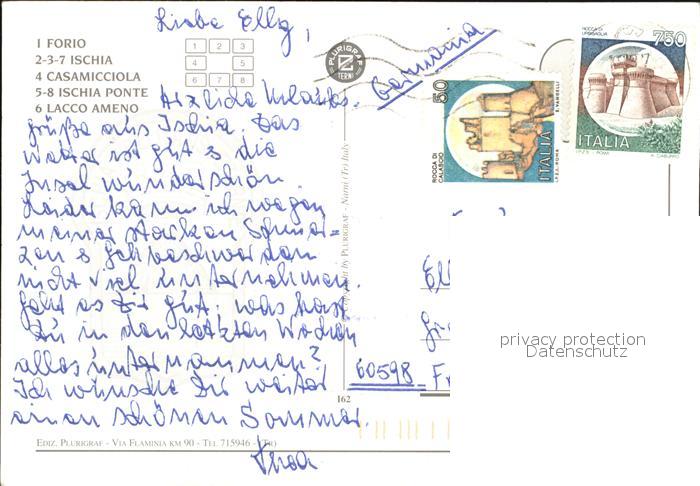 Liebe Elly,
1 FORIO
2-3-7 ISCHIA
4 CASAMICCIOLA
5-8 ISCHIA PONTE
6 LACCO AMENO
1 2 3
4 5
6 7 8
PLURIGRAF
TERNI
Germania
50
ROCCA DI CALASCIO
ITALIA
I.P.Z.S. ROMA
E. VANGELLI
ROCCA DI URBISAGLIA
750
ITALIA
I.P.Z.S. - ROMA
Herzliche Urlaubs-
grüße aus Ischia. Das
Wetter ist gut & die
Insel wunderschön.
Leider kann ich wegen
meiner starken Schmer=
zen & Gehbeschwerden
nicht viel unternehmen.
Geht es Dir gut, was hast
Du in den letzten Wochen
alles unternommen?
Ich wünsche Dir weiter
einen schönen Sommer.
Copyright by PLURIGRAF - Narni (Tr) Italy
162
60598 F
privacy protection
Datenschutz
EDIZ. PLURIGRAF - VIA FLAMINIA KM 90 - TEL 715946 - (TR)